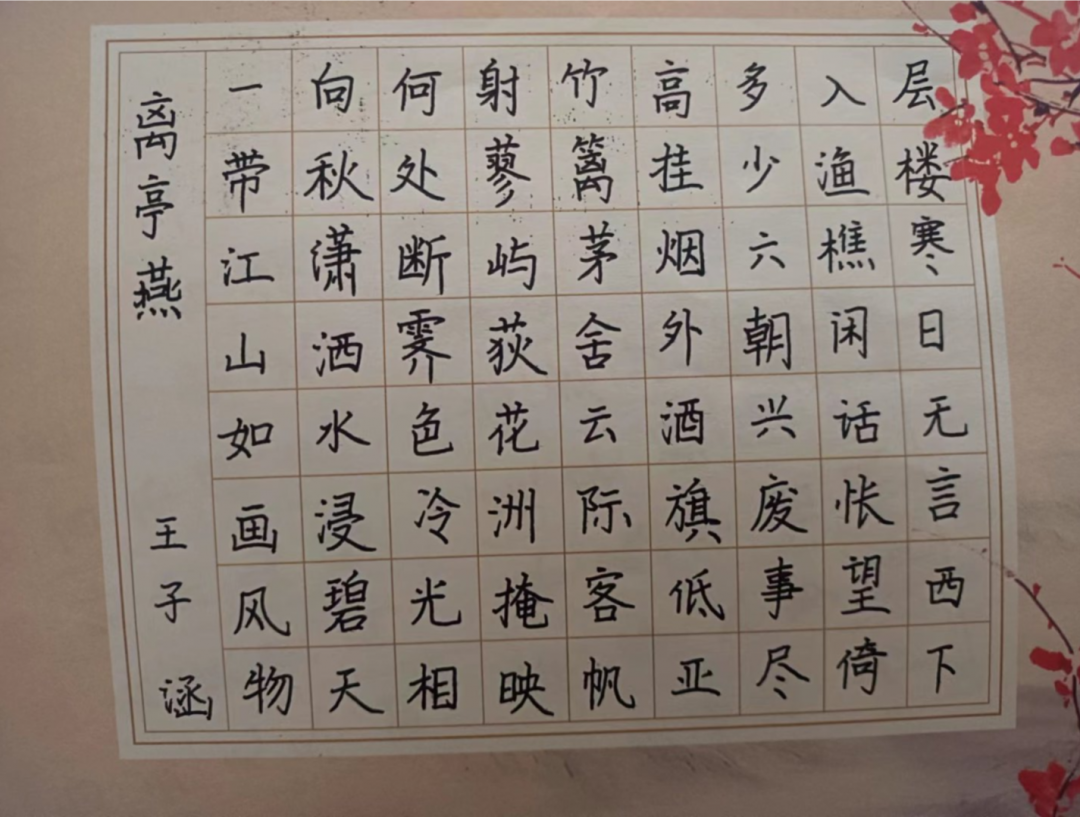 离亭燕
王子涵
一带江山如画风物
向秋潇洒水浸碧天
何处断霁色冷光相
射蓼屿荻花洲掩映
竹篱茅舍云际客帆
高挂烟外酒旗低亚
多少六朝兴废事尽
入渔樵闲话怅望倚
层楼寒日无言西下